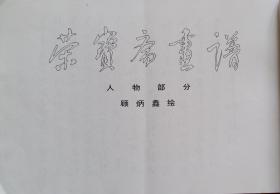 荣宝斋画谱
人物部分
顾炳鑫绘